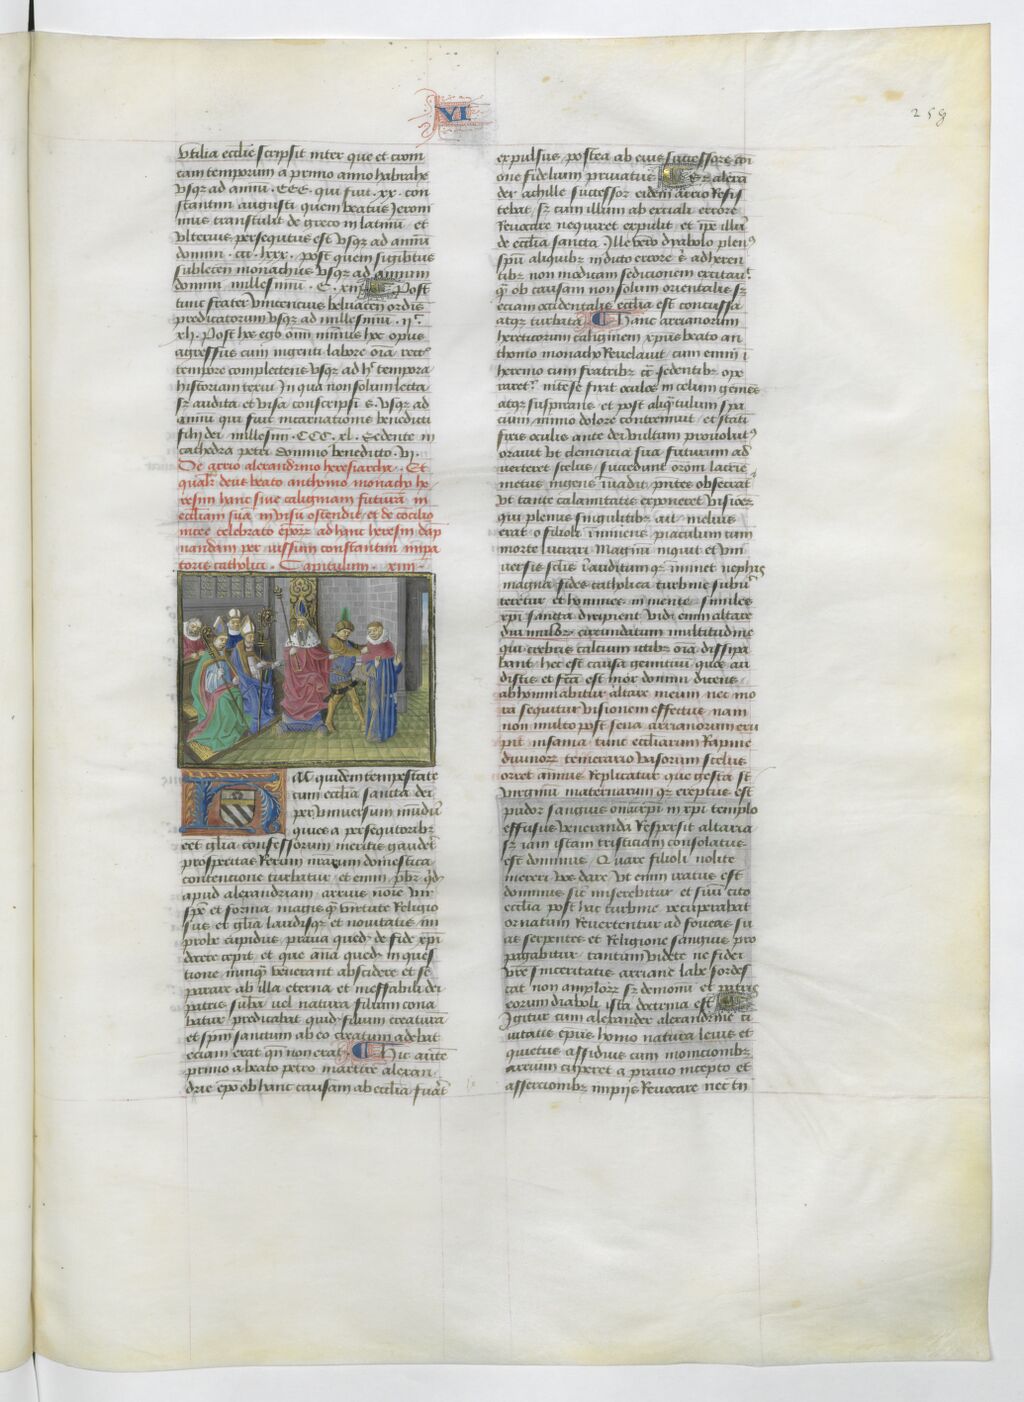 VI
259
vtilia ecclesie scripsit inter que et cronicam
temporum a primo anno habrahe
vsque ad annum . CCC . qui fuit . xx . con
stantini augusti quem beatus Jeroni
mus transtulit de greco in latinum et
vlterius persequutus est vsque ad annum
domini . ccc . lxxx . post quem sigibertus
monachus vsque ad annum
domini millesimum . C . Post
tunc frater vincencius beluacen ordinis
predicatorum vsque ad millesimum
xli . Post hec ego omnium minimus hoc opus
agressus cum ingenti labore
tempore complectens vsque ad hec tempora
historiam texui In qua non solum lecta
sed audita et visa conscripsi vsque ad
annum qui fuit incarnationis benedicti
filii dei millesimi . CCC . xl . Sedente in
cathedra petri domino benedicto . vi .
De arrio alexandrino heresiarcha . Et
qualiter deus beato anthonio monacho he
resim hanc siue caliginam futuram in
ecclesiam suam in visu ostendit et de concilio
nicee celebrato ad hanc heresim damp
nandam per iussum constantini impera
toris catholici . Capitulum . xiiii .
quidem tempestate
cum ecclesia sancta dei
per vniuersum mundum
quies a persequtoribus
et gloria confessorum meritis gauderet
prosperitas rerum nostrarum domestica
contencione turbatur et enim presbiter quidam
apud alexandriam arrius nomine vir
specie et forma magis quam virtute religio
sus et glorie laudisque et nouitatis im
probe cupidus praua quedam de fide christi
docere cepit et que antea quedam in ques
tione nunquam venerant abscidere et se
parare ab illa eterna et ineffabili dei
patris substantia vel natura filium cona
batur predicabat quidem filium creaturam
et spiritum sanctum ab eo creatum addebat
eciam erat quando non erat . Hic autem
primo a beato petro martire alexan
drie episcopo ob hanc causam ab ecclesia fuerat
expulsus postea ab eius successore
one fidelium priuatus Et alexan
der achille successor eidem arrio resis
tebat sed cum illum ab errore
reuocare nequiret expulit et ipse illum
de ecclesia sancta . Ille vero dyabolo plenus
spiritu aliquibus inducto errore et adheren
tibus non modicam sedicionem excitauit
quam ob causam non solum orientalis sed
eciam occidentalis ecclesia est concussa
atque turbata Hanc arrianorum
hereticorum caliginem christus beato an
thonio monacho reuelauit cum enim in
heremo cum fratribus sedentibus ope
raretur intense fixit oculos in celum gemens
atque suspirans et post aliquantulum spa
cium nimio dolore contremuit et statim
fixis oculis ante dei vultum prouolutus
orauit vt clementia sua futurum ad
uerteret scelus succedunt orationi lacrime
metus ingens inuadit presentes obsecrat
vt tante calamitatis exponeret visiones
qui plenus singultibus ait melius
erat o filioli inminens piaculum cum
morte lucrari Magnum inquit et vni
uersis seculis inauditum inminet nephas
magna fides catholica turbine subuer
teretur et homines iumentis similes
christi sancta diripient vidi enim altare
domini mulorum circundatum multitudine
qui crebris calcium ictibus omnia dissipa
bant hec est causa gemituum quos au
distis et facta est vox domini dicens
abhominabitur altare meum nec mo
ra sequitur visionem effectus nam
non multo post seua arrianorum eru
pit insania tunc ecclesiarum rapine
diuinorum temeratio vasorum scelus
oriet amnis Replicatur que gesta sunt
virginum maternarum
pudor sanguis in christi templo
effusus veneranda respersit altaria
sed iam istam tristiciam consolatus
est dominus . Quare filioli nolite
merori vos dare vt enim iratus est
dominus sic miserebitur et suum cito
ecclesia post hac turbine recuperabit
ornatum reuertentur ad foueas su
as serpentes et religione sanguis pro
pagabitur tantum videte ne fidei
vestre sinceritatis arriane labe sordes
cat non apostolorum sed demonum et patris
eorum diaboli ista doctrina est
Igitur cum alexander alexandrine ci
uitatis episcopus homo natura leuis et
quietus assiduis cum monicionibus
arrium cuperet a prauo incepto et
assercionibus impiis reuocare nec tamen